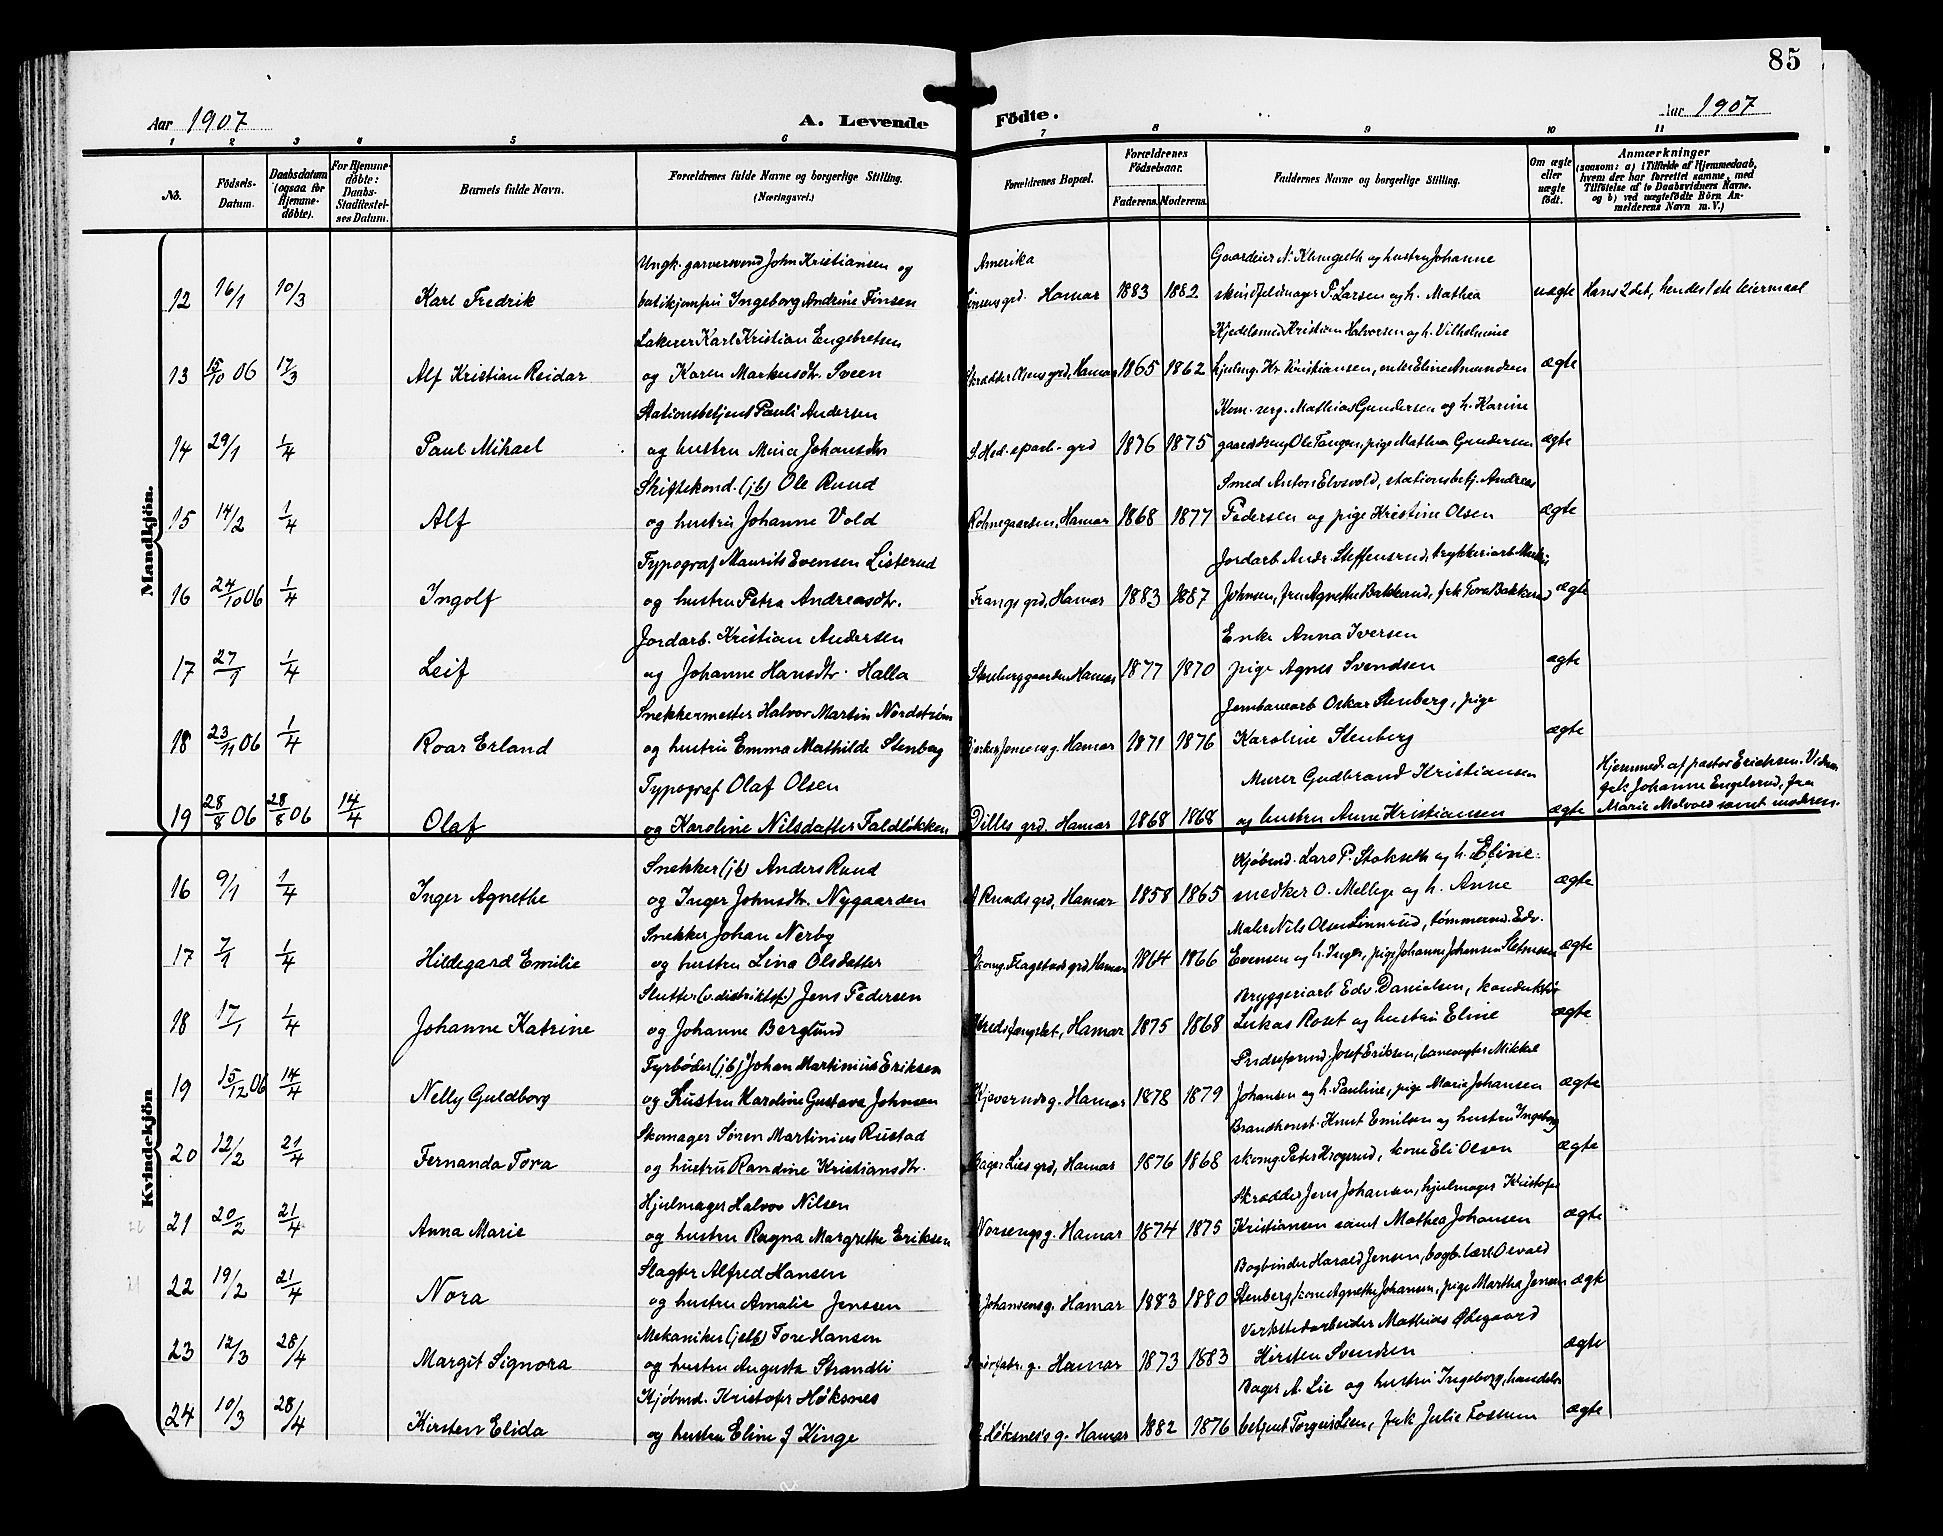 85
Aar 1907
A. Levende Födte.
Aar 1907
1 2 3 4 5 6 7 8 9 10 11
No.
Födsels-Datum.
Daabsdatum (ogsaa for Hjemmedøbte).
For Hjemmedøbte: Daabs-Stadfæstelses Datum.
Barnets fulde Navn.
Forældrenes fulde Navne og borgerlige Stilling. (Næringsvei.)
Forældrenes Bopæl.
Forældrenes Födselsaar.
Faderens. Moderens.
Faddernes Navne og borgerlige Stilling.
Om ægte eller uægte født.
Anmærkninger
(saasom: a) i Tilfælde af Hjemmedaab, hvem der har forrettet samme, med Tilföielse af to Daabsvidners Navne. og b) ved uægtefødte Börn Anmelderens Navn m. V.)
Mandkjön.
Ungk. garversvend John Kristiansen og Amerika Gaardeier N. Klungseth og hustru Johanne
12 16/1 10/3 Karl Fredrik butikjomfru Ingeborg Andrine Finsen Finsens grd. Hamar 1883 1882 skindfeldmager P. Larsen og h. Mathea uægte Hans 2det, hendes 1ste leiermaal
Lakerer Karl Kristian Engebretsen Kjedelsmed Kristian Halvorsen og h. Vilhelmine
13 15/10 06 17/3 Alf Kristian Reidar og Karen Markusdtr. Sveen Skrædder Olsens grd, Hamar 1865 1862 hjulmg. Kr. Kristiansen, enke Eline Amundsen ægte
Stationsbetjent Pauli Andersen Kom. serg. Mathias Gundersen og h. Karine
14 29/1 1/4 Paul Mihael og hustru Mina Johansdtr S. Hed. sparb. grd 1876 1875 gaardsdreng Ole Tangen, pige Mathea Gundersen ægte
Skiftekond. (jb) Ole Ruud Smed Anton Elvsvold, stationsbetj. Andreas
15 14/2 1/4 Alf og hustru Johanne Vold Röhnegaarden, Hamar 1868 1877 Pedersen og pige Kristine Olsen ægte
Typograf Maurits Evensen Listerud Jordarb. Andr. Steffensrud, trykkeriarb. Martin
16 24/10 06 1/4 Ingolf og hustru Petra Andreasdtr. Frangs grd, Hamar 1883 1887 Johnsen, fru Agnethe Bakkerud, frk Tora Bakkerud ægte
Jordarb. Kristian Andersen Enke Anna Iversen
17 27/1 1/4 Leif og Johanne Hansdtr. Halla Stenberggaarden Hamar 1877 1870 pige Agnes Svendsen ægte
Snekkermester Halvor Martin Nordstrøm Jernbanearb Oskar Stenberg, pige
18 23/11 06 1/4 Roar Erland og hustru Emma Mathilde Stenberg Birker Jensens g. Hamar 1871 1876 Karoline Stenberg ægte
Typograf Olaf Olsen Murer Gudbrand Kristiansen Hjemmed. af pastor Erichsen. Vidner frk Johanne Engelsrud, fru
19 28/8 06 28/8 06 14/4 Olaf og Karoline Nilsdatter Faldløkken Dilles grd. Hamar 1868 1868 og hustru Anne Kristiansen ægte Marie Melvold samt moderen.
Kvindekjön
Snekker (jb) Anders Ruud Kjøbmd. Lars P. Stokseth og h. Eline
16 9/1 1/4 Inger Agnethe og Inger Johnsdtr. Nygaarden A Ruuds grd, Hamar 1858 1865 snedker O. Mellege og h. Anne ægte
Snekker Johan Nerby Maler Nils Olsen Linnrud, tømmermd. Edv.
17 7/1 1/4 Hildegard Emilie og hustru Lina Olsdatter Skomg. Flagstads grd Hamar 1864 1866 Evensen og h. Inger, pige Johanne Johansen Sletmoen ægte
Slutter (v. distriktsf.) Jens Pedersen Bryggeriarb Edv. Danielsen, konduktør
18 17/1 1/4 Johanne Katrine og Johanne Berglund Kredsfængslet, Hamar 1875 1868 Lukas Roset og hustru Eline ægte
Fyrbøder (jb) Johan Martinius Eriksen Pudseformd. Josef Eriksen, banevogter Mikkel
19 15/12 06 14/4 Nelly Guldborg og Hustru Karoline Gustava Johnsen Kjeveruds g. Hamar 1878 1879 Johansen og h. Pauline, pige Marie Johansen ægte
Skomager Søren Martinius Rustad Brandkonst. Knut Emilsen og hustru Ingeborg
20 12/2 21/4 Fernanda Tora og hustru Randine Kristiansdtr. Bager Lies grd, Hamar 1876 1868 skomg Peter Krogerud, kone Eli Olsen ægte
Hjulmager Halvor Nilsen Skrædder Jens Johansen, hjulmager Kristofer
21 20/2 21/4 Anna Marie og hustru Ragna Margrethe Eriksen Norsengs g. Hamar 1874 1875 Kristiansen samt Mathea Johansen ægte
Slagter Alfred Hansen Bogbinder Harald Jensen, bogb. lærl Osvald
22 19/2 21/4 Nora og hustru Amalie Jenssen Johansens g. Hamar 1883 1880 Stenberg, kone Agnethe Johansen, pige Martha Jensen ægte
Mekaniker (jslb) Tore Hansen Verkstedarbeider Mathias Ødegaard
23 12/3 28/4 Margit Signora og hustru Augusta Strandli g. Hamar 1873 1883 Kirsten Svendsen ægte
Kjøbmd. Kristofer Høksnes Bager A. Lie og hustru Ingeborg, handels
24 10/3 28/4 Kirsten Elida og hustru Eline J Kinge Høksnes g. Hamar 1882 1876 betjent Torgeir Lien, frk Julie Fossum ægte